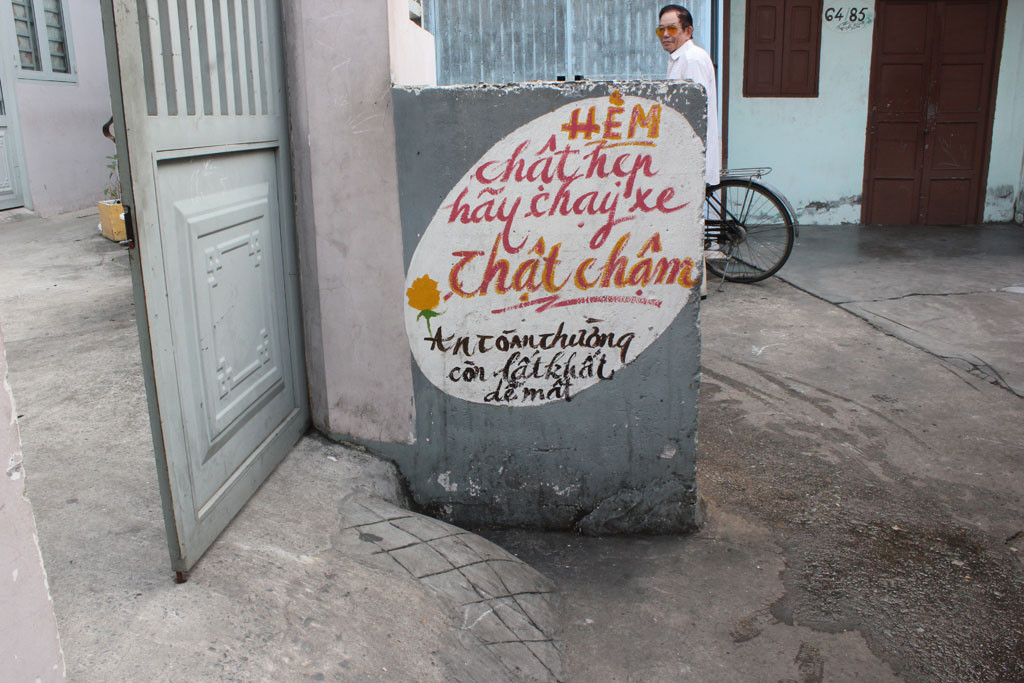 64/85
HẺM
chật hẹp
hãy chạy xe
Thật chậm
AN TOÀN thường
còn lất khất
dễ mất